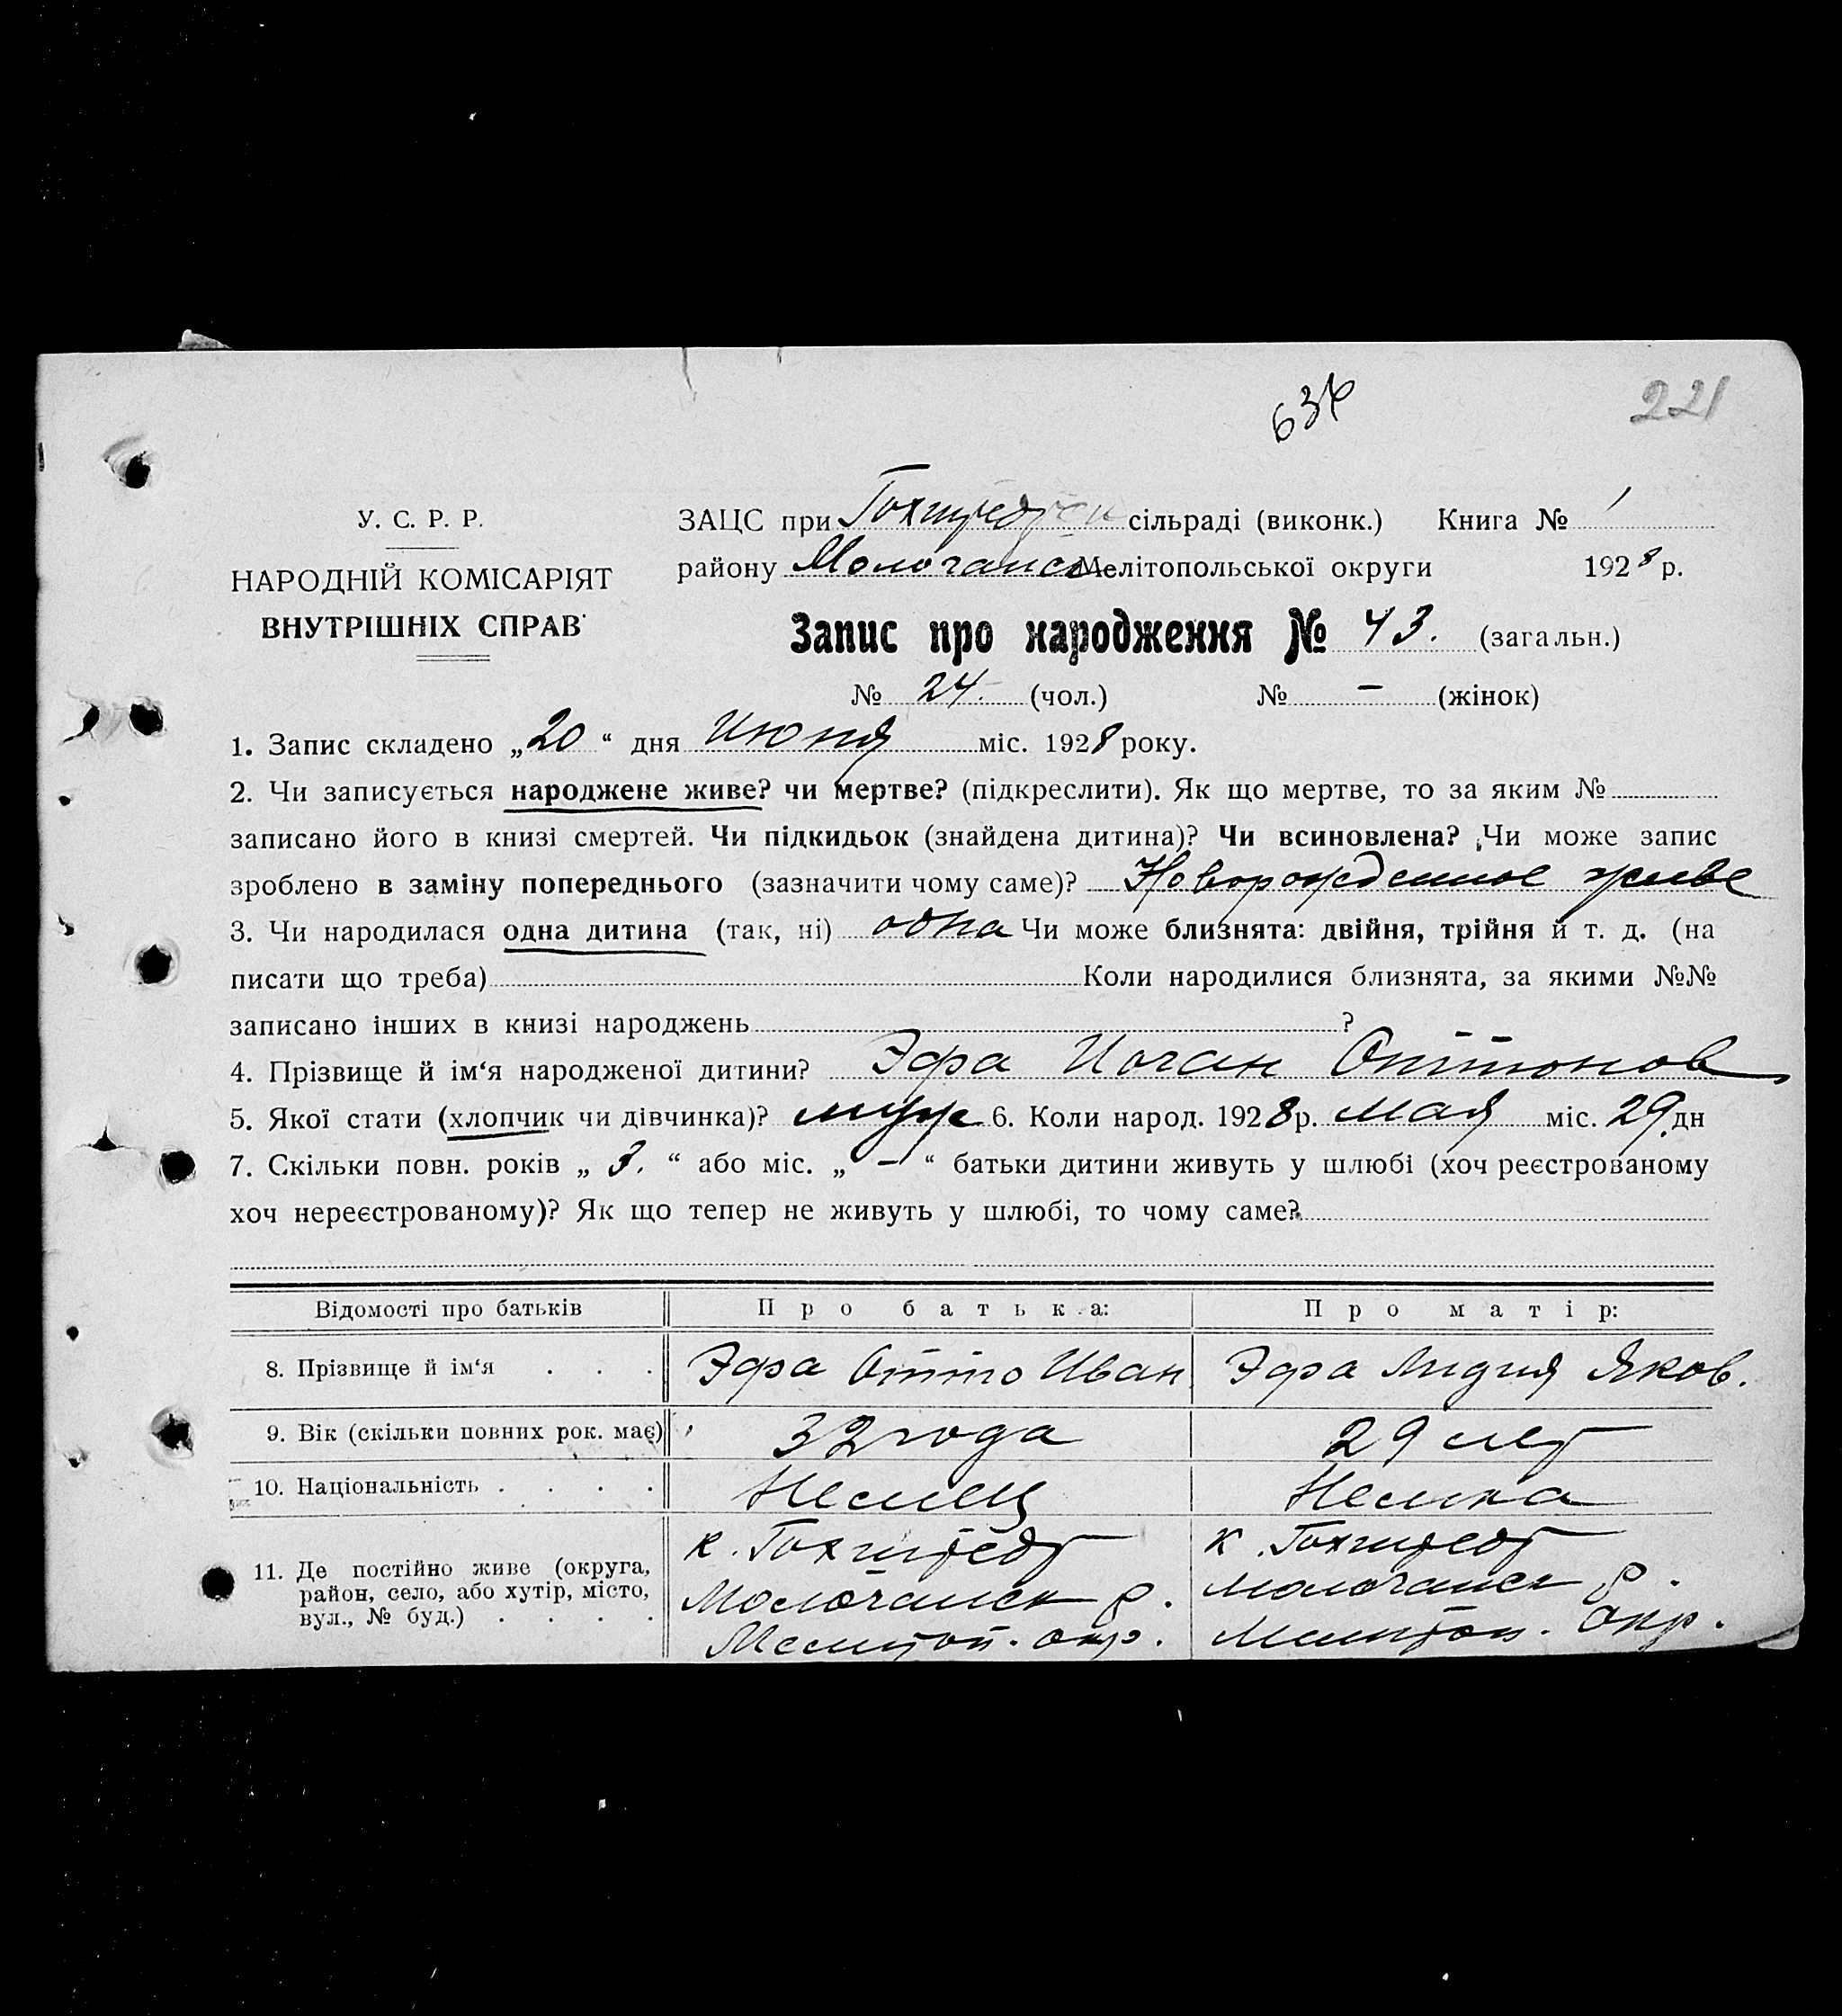 634
221
У. С. Р. Р.
НАРОДНІЙ КОМІСАРІЯТ
ВНУТРІШНІХ СПРАВ
ЗАЦС при Гохштедтск сільраді (виконк.) Книга № 1
району Молочанск Мелітопольської округи 1928 р.
Запис про народження № 43. (загальн.)
№ 24. (чол.) № – (жінок)
1. Запис складено „20“ дня Июня міс. 1928 року.
2. Чи записується народжене живе? чи мертве? (підкреслити). Як що мертве, то за яким №
записано його в книзі смертей. Чи підкидьок (знайдена дитина)? Чи всиновлена? Чи може запис
зроблено в заміну попереднього (зазначити чому саме)? Новорожденное живое
3. Чи народилася одна дитина (так, ні) одна Чи може близнята: двійня, трійня й т. д. (на
писати що треба) Коли народилися близнята, за якими №№
записано інших в книзі народжень ?
4. Прізвище й ім‘я народженої дитини? Эфа Иоган Оттонов
5. Якої стати (хлопчик чи дівчинка)? муж 6. Коли народ. 1928р. Мая міс. 29.дн
7. Скільки повн. років „ 3. “ або міс. „ – “ батьки дитини живуть у шлюбі (хоч реєстрованому
хоч нереєстрованому)? Як що тепер не живуть у шлюбі, то чому саме?
Відомості про батьків Про батька: Про матір:
8. Прізвище й ім‘я . . . Эфа Отто Иван Эфа Лидия Яков.
9. Вік (скільки повних рок. має) 32 года 29 лет
10. Національність . . . . Немец Немка
11. Де постійно живе (округа, район, село, або хутір, місто, вул., № буд.) . . . .
к. Гохштедт
Молочанск р.
Мелитоп. окр.
к. Гохштедт
Молочанск р.
Мелитоп. окр.